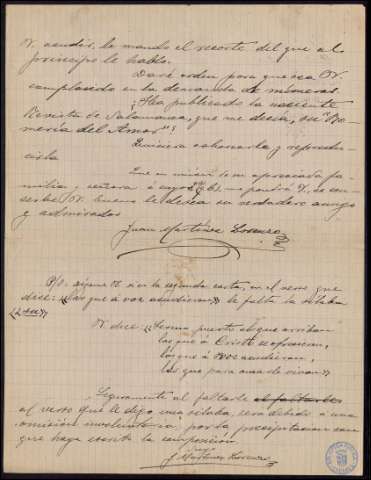 V. acudir, le mando el recorte del que al
principio le hablo.
Daré orden para que sea V.
complacido en la demanda de números.
¿Ha publicado la naciente
Revista de Salamanca, que me decía, su "Ro-
mería del Amor"?
Quisiera saborearla y reprodu-
cirla
Que en unión de su apreciada fa-
milia y señora á
V. bueno le desea su verdadero amigo
y admirador
Juan Martínez Lorenzo
P/D. si en la segunda carta, en el verso que
dice: "las que á voz acudieran" le falta la sílaba
V. dice: "Fueron puerto al que arriban
las que á Cristo se ofrecían,
las que á voz acudieran,
las que para amar vivan"
Seguramente al faltarle
al verso que le digo una sílaba, será debido á una
omisión involuntaria, por la precipitación con
que haya escrito la composición
J. Martínez Lorenzo